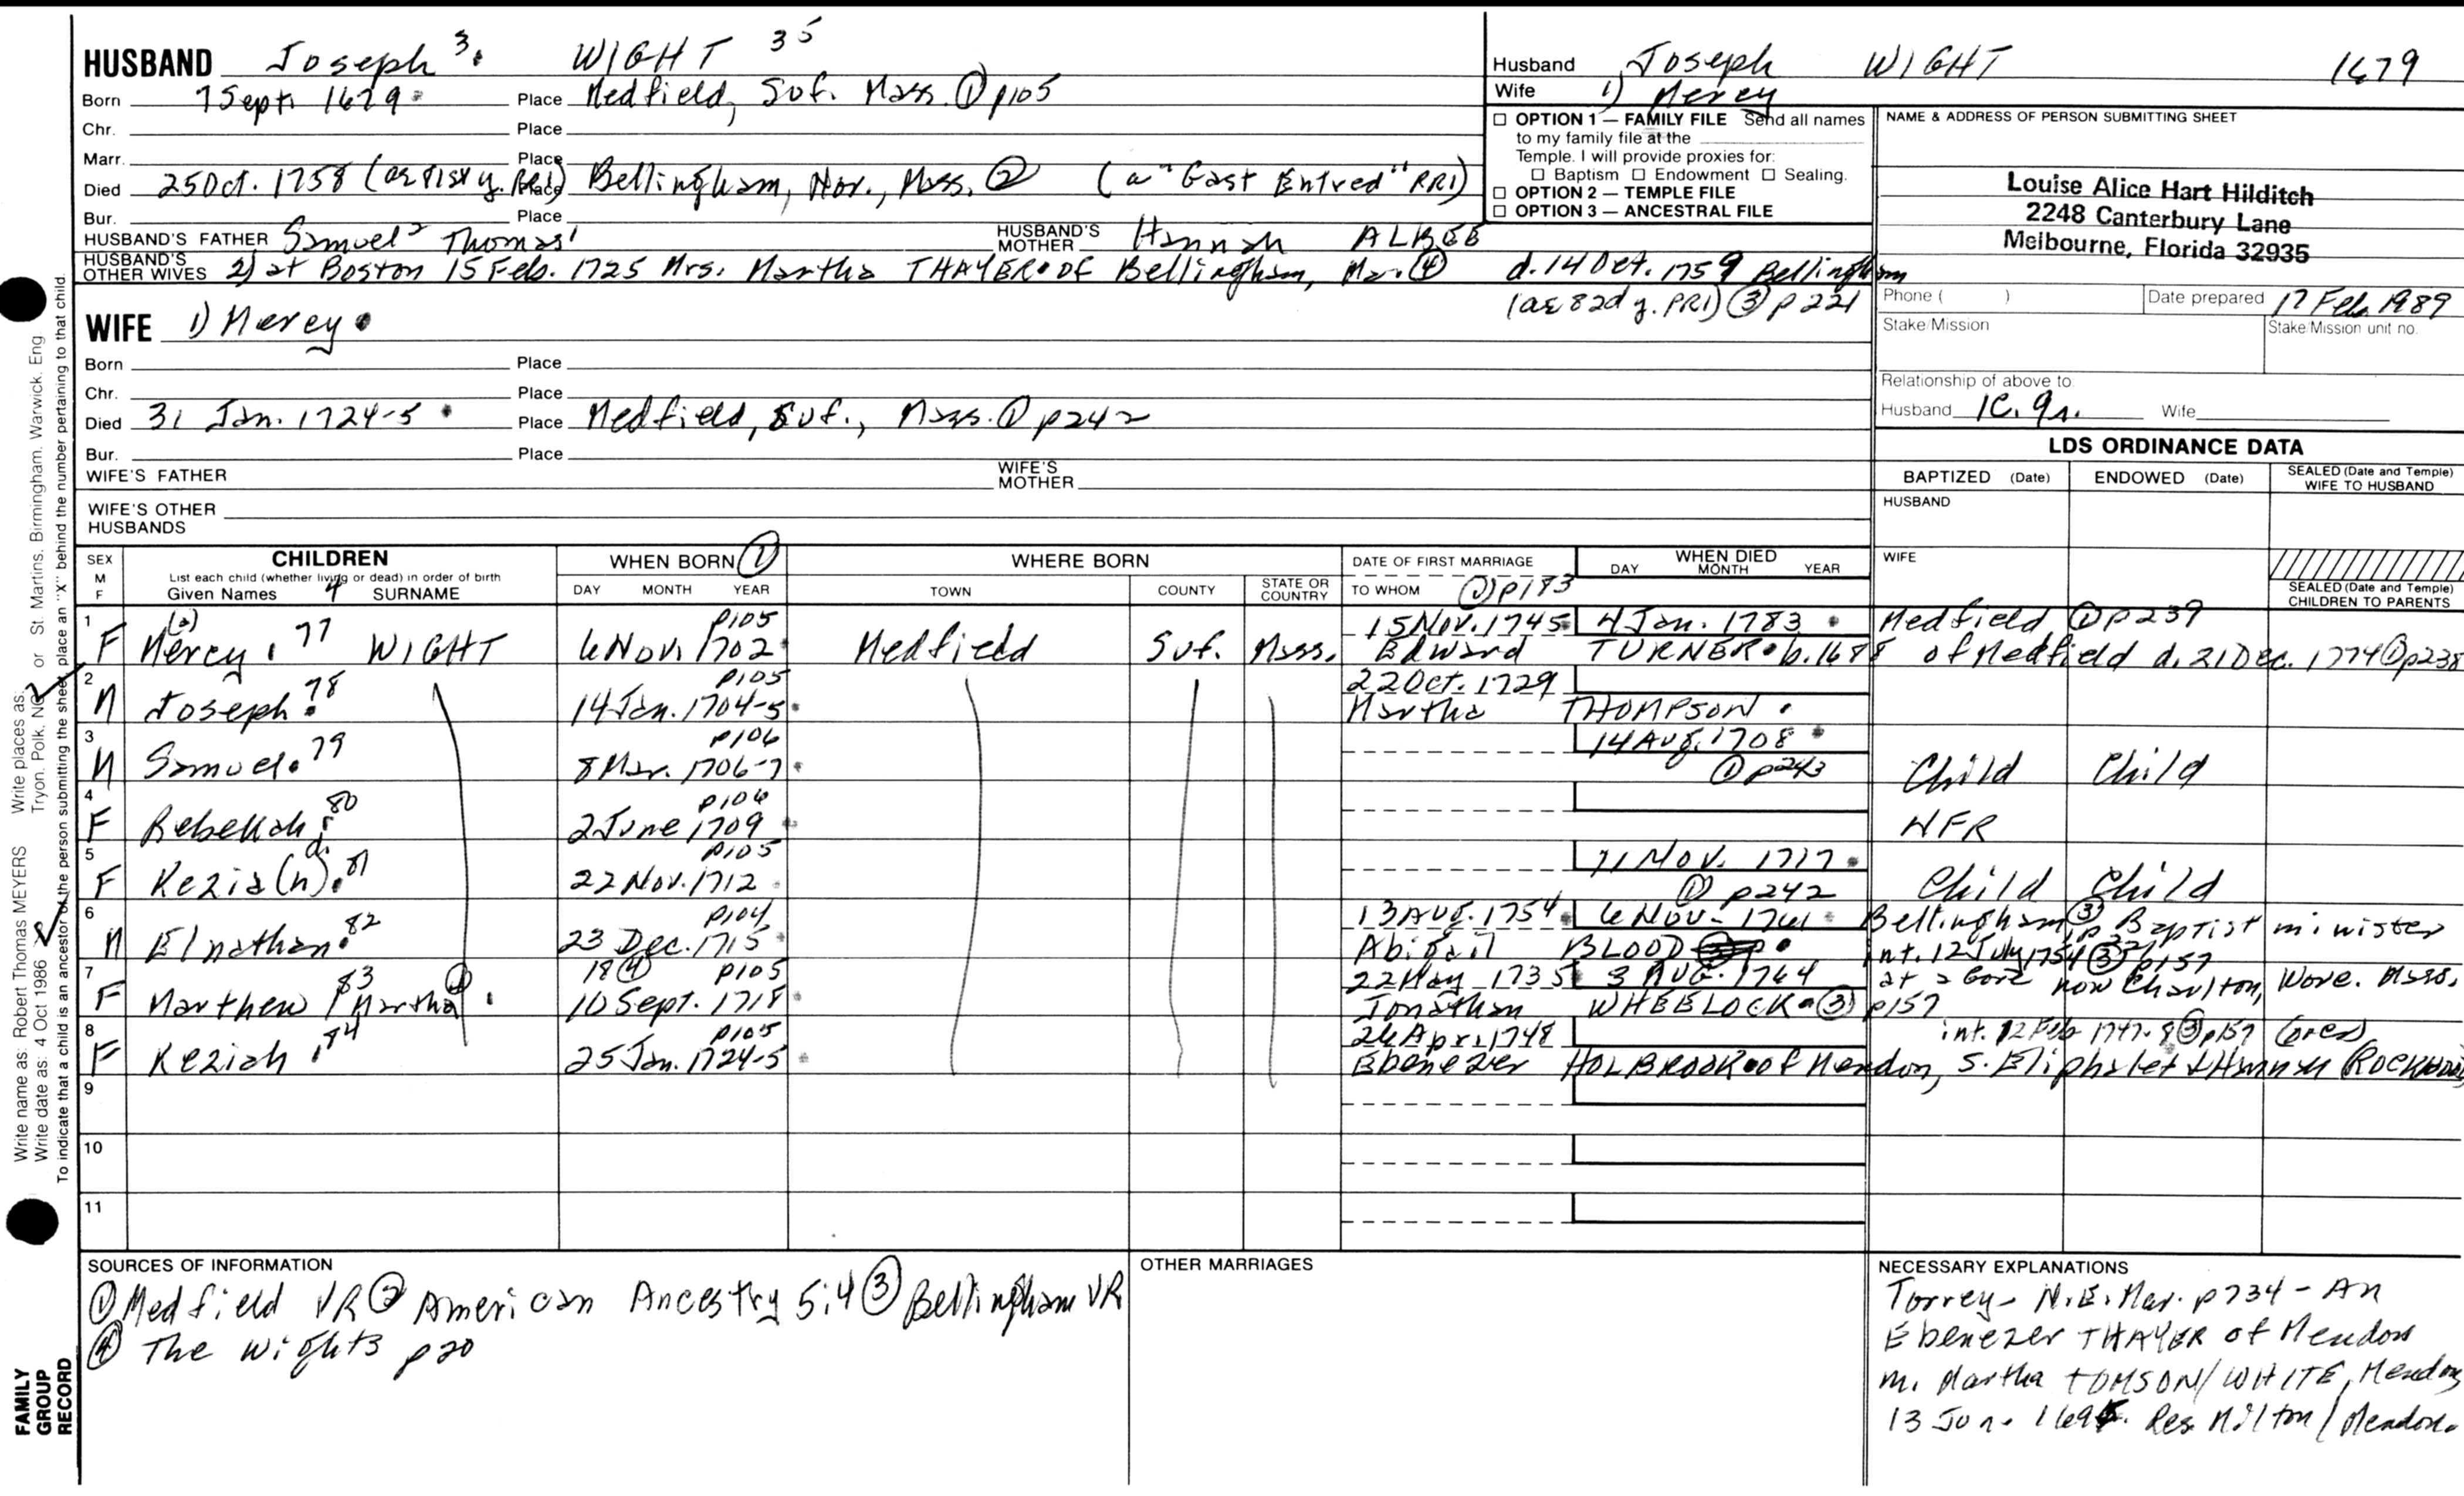 HUSBAND Joseph 3. WIGHT 35
Born 7 Sept. 1679 Place Medfield, Suf. Mass. ① p105
Chr. Place
Marr. Place
Died 25 Oct. 1758 Place Bellingham, Nor., Mass. ②
Bur. Place
HUSBAND'S FATHER Samuel² Thomas¹ HUSBAND'S MOTHER Hannah ALBEE
HUSBAND'S OTHER WIVES 2) at Boston 15 Feb. 1725 Mrs. Martha THAYER of Bellingham, Ma. ④ d. 14 Oct. 1759 Bellingham
(ae 82d y. PR1) ③ p 221
WIFE 1) Mercy
Born Place
Chr. Place
Died 31 Jan. 1724-5 Place Medfield, Suf., Mass. ① p242
Bur. Place
WIFE'S FATHER WIFE'S MOTHER
WIFE'S OTHER HUSBANDS
Husband Joseph WIGHT 1679
Wife 1) Mercy
☐ OPTION 1 — FAMILY FILE Send all names
to my family file at the
Temple. I will provide proxies for:
☐ Baptism ☐ Endowment ☐ Sealing.
☐ OPTION 2 — TEMPLE FILE
☐ OPTION 3 — ANCESTRAL FILE
NAME & ADDRESS OF PERSON SUBMITTING SHEET
Louise Alice Hart Hilditch
2248 Canterbury Lane
Melbourne, Florida 32935
Phone ( ) Date prepared 17 Feb. 1989
Stake/Mission Stake/Mission unit no.
Relationship of above to:
Husband 1C. 9r. Wife
LDS ORDINANCE DATA
BAPTIZED (Date) ENDOWED (Date) SEALED (Date and Temple) WIFE TO HUSBAND
HUSBAND
WIFE
SEALED (Date and Temple) CHILDREN TO PARENTS
SEX M F
CHILDREN
List each child (whether living or dead) in order of birth
Given Names 4 SURNAME
WHEN BORN ①
DAY MONTH YEAR
WHERE BORN
TOWN COUNTY STATE OR COUNTRY
DATE OF FIRST MARRIAGE
TO WHOM ① p183
WHEN DIED
DAY MONTH YEAR
p105 15 Nov. 1745 4 Jan. 1783 Medfield ① p239
1 F Mercy 77 WIGHT 6 Nov. 1702 Medfield Suf. Mass. Edward TURNER b. 1688 of Medfield d. 21 Dec. 1774 ① p238
p105 22 Oct. 1729
2 M Joseph 78 14 Jan. 1704-5 Martha THOMPSON
p106 14 Aug. 1708
3 M Samuel 79 8 Mar. 1706-7 ① p243 Child Child
p106
4 F Rebekah 80 2 June 1709 NFR
p105 11 Nov. 1717
5 F Kezia(h) d. 81 22 Nov. 1712 ① p242 Child Child
p104 13 Aug. 1754 6 Nov. 1761 Bellingham ③ Baptist minister
6 M Elnathan 82 23 Dec. 1715 Abigail BLOOD int. 12 July 1754 ③ p157
18 ④ p105 22 May 1735 3 Aug. 1764 at a Gore now Charlton, Worc. Mass.
7 F Marthew / Martha ④ 83 10 Sept. 1718 Jonathan WHEELOCK ③ p157
p105 26 Apr. 1748 int. 12 Feb 1747-8 ③ p157
8 F Keziah 84 25 Jan. 1724-5 Ebenezer HOLBROOK of Mendon, s. Eliphalet & Hannah (ROCKWOOD
9
10
11
SOURCES OF INFORMATION
① Medfield VR ② American Ancestry 5:4 ③ Bellingham VR
④ The Wights p20
OTHER MARRIAGES
NECESSARY EXPLANATIONS
Torrey - N.E. Mar. p734 - An
Ebenezer THAYER of Mendon
m. Martha TOMSON/WHITE, Mendon
13 Jun. Res Milton / Mendon.
Write name as: Robert Thomas MEYERS Write places as: Tryon, Polk, NC or St. Martins, Birmingham, Warwick, Eng
Write date as: 4 Oct 1986
To indicate that a child is an ancestor of the person submitting the sheet, place an "X" behind the number pertaining to that child.
FAMILY
GROUP
RECORD